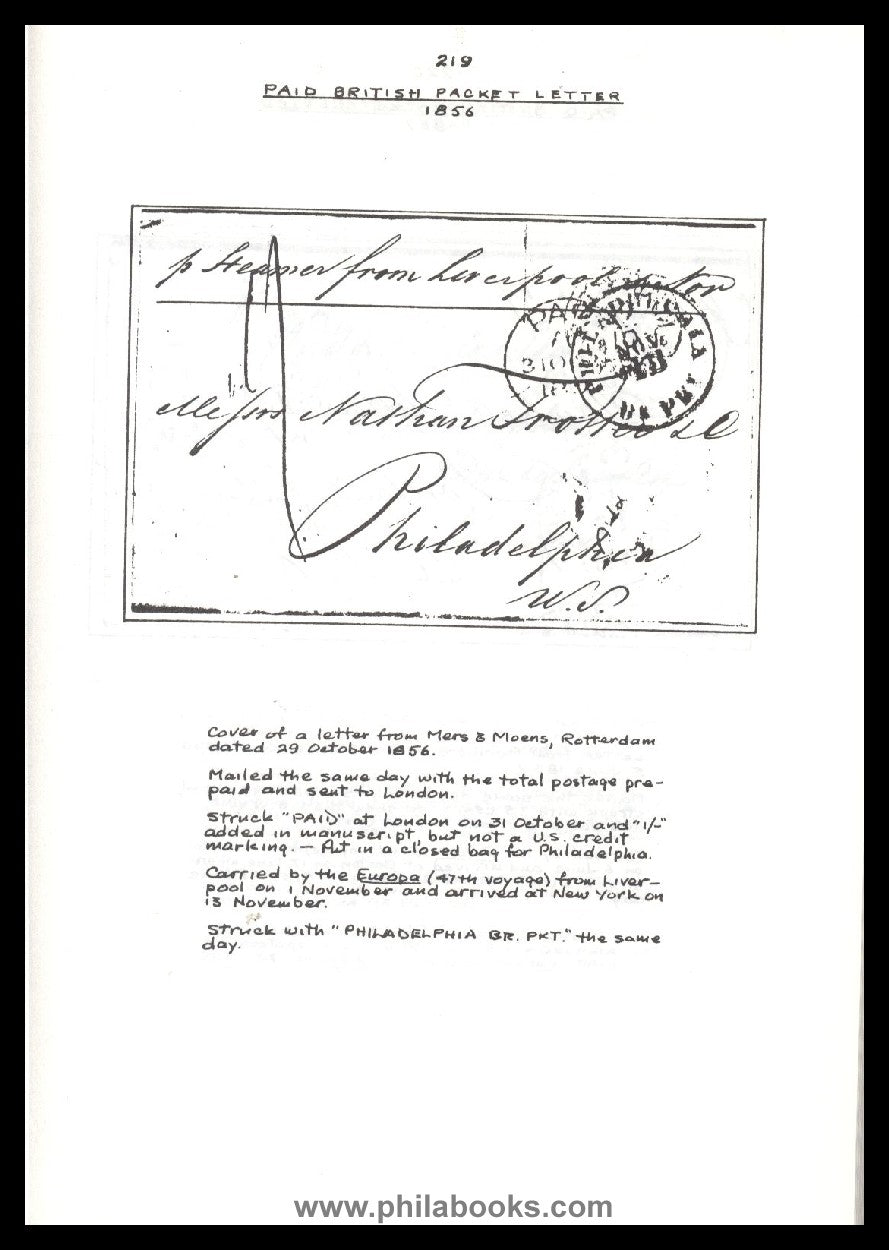 219
PAID BRITISH PACKET LETTER
1856
p Steamer from Liverpool
PAID
PHILADELPHIA
NOV
BR PKT
Messrs Nathan Trotter & Co
Philadelphia
U.S.
Cover of a letter from Mers & Moens, Rotterdam
dated 29 October 1856.
Mailed the same day with the total postage pre-
paid and sent to London.
Struck "PAID" at London on 31 October and "1/-"
added in manuscript, but not a U.S. credit
marking. — Put in a closed bag for Philadelphia.
Carried by the Europa (47th voyage) from Liver-
pool on 1 November and arrived at New York on
13 November.
Struck with "PHILADELPHIA BR. PKT." the same
day.
www.philabooks.com